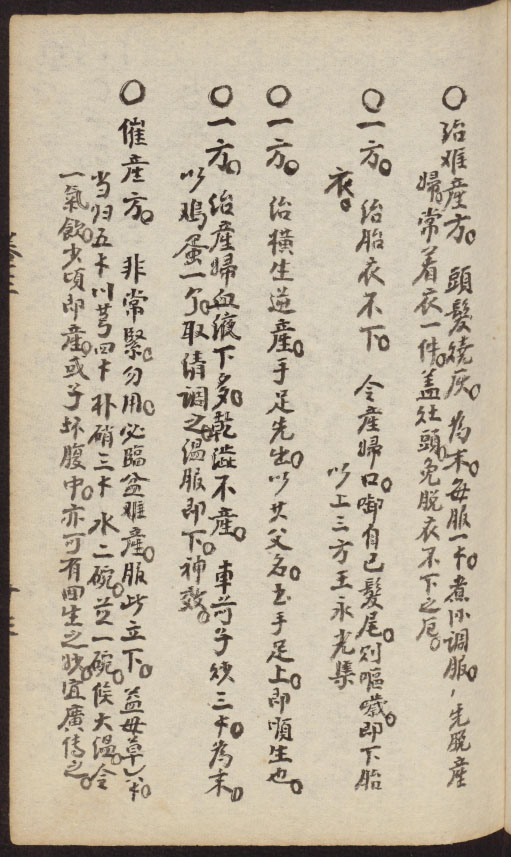 〇治难產方。頭髮燒灰。為末。每服一卞。煮沸调服，先脫產
婦常着衣一件。盖灶頭。免脫衣不下之厄。
〇一方。治胎衣不下。令產婦口啣自己髮尾。则嘔噦。即下胎
衣。
以上三方王永光集
〇一方。治橫生逆產。手足先出。以其父名。书手足上。即順生也。
〇一方。治產婦血液下多。乾澁不產。車前子炒三卞。為末。
以鳮蛋一个。取清调之。温服即下。神效。
〇催產方。非常緊。勿用。必臨盆难產。服此立下。益母草一卞。
当归五卞川芎四卞朴硝三卞水二碗。煎一碗。俟大温。令
一氣飲。少頃即產。或子坏腹中。亦可有回生之妙。宜廣傳之。